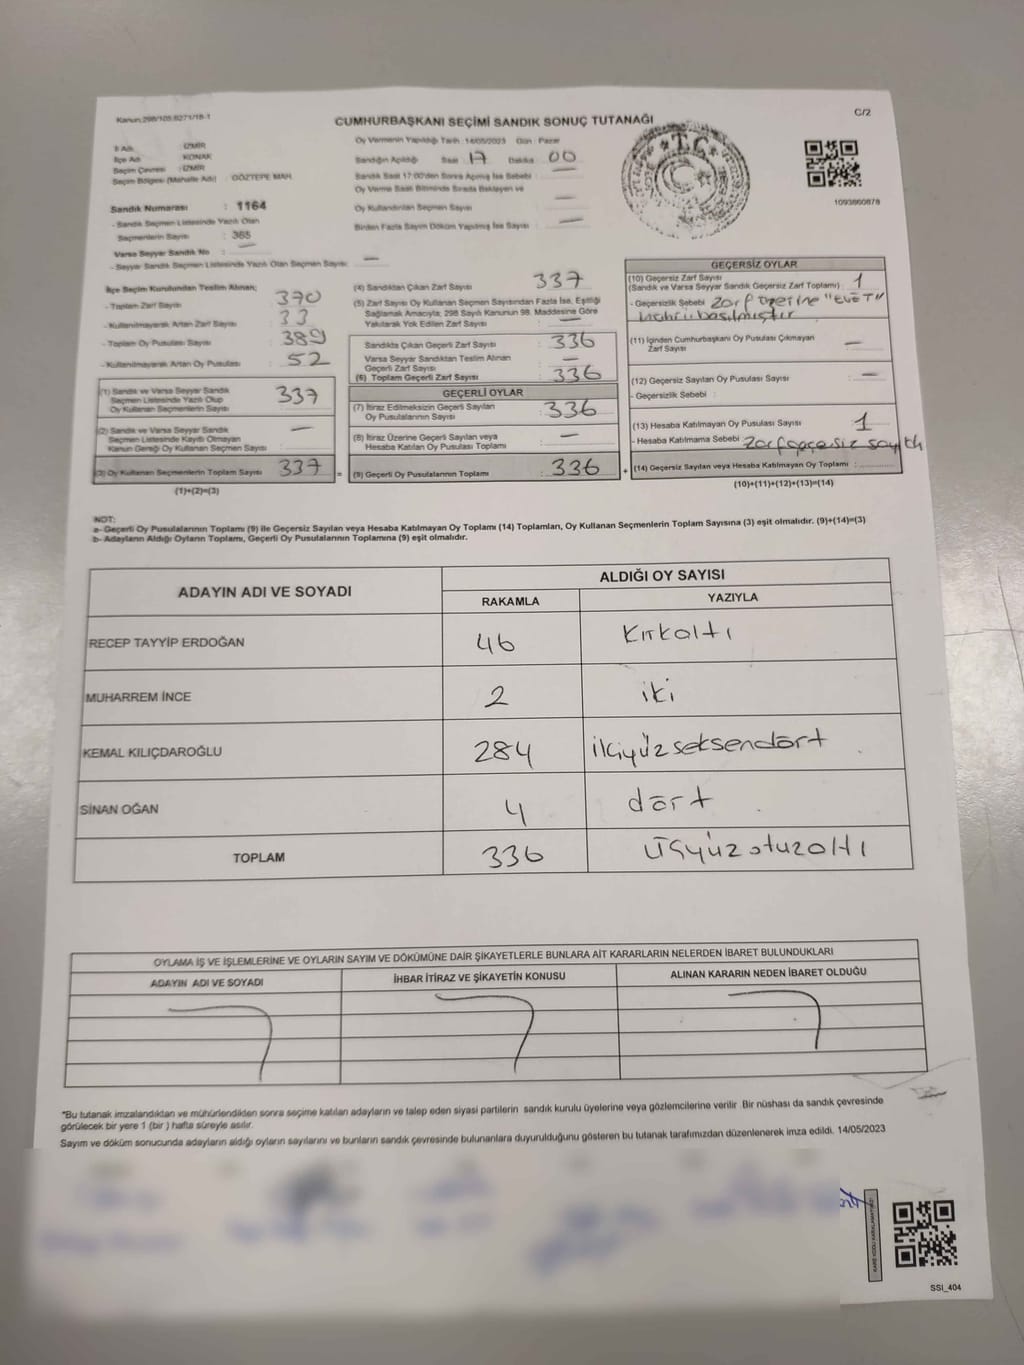 Kanun:298/105.6271/18-1
C/2
CUMHURBAŞKANI SEÇİMİ SANDIK SONUÇ TUTANAĞI
İl Adı : İZMİR
İlçe Adı : KONAK
Seçim Çevresi : İZMİR
Seçim Bölgesi (Mahalle Adı) : GÖZTEPE MAH.
Sandık Numarası : 1164
- Sandık Seçmen Listesinde Yazılı Olan
Seçmenlerin Sayısı : 365
Varsa Seyyar Sandık No : —
- Seyyar Sandık Seçmen Listesinde Yazılı Olan Seçmen Sayısı: —
Oy Vermenin Yapıldığı Tarih :14/05/2023 Gün : Pazar
Sandığın Açıldığı Saat : 17 Dakika : 00
Sandık Saat 17:00'den Sonra Açılmış İse Sebebi : —
Oy Verme Saati Bitiminde Sırada Bekleyen ve
Oy Kullandırılan Seçmen Sayısı : —
Birden Fazla Sayım Döküm Yapılmış İse Sayısı : —
T.C.
1093860878
İlçe Seçim Kurulundan Teslim Alınan;
- Toplam Zarf Sayısı : 370
- Kullanılmayarak Artan Zarf Sayısı : 33
- Toplam Oy Pusulası Sayısı : 389
- Kullanılmayarak Artan Oy Pusulası : 52
(1) Sandık ve Varsa Seyyar Sandık
Seçmen Listesinde Yazılı Olup
Oy Kullanan Seçmenlerin Sayısı : 337
(2) Sandık ve Varsa Seyyar Sandık
Seçmen Listesinde Kayıtlı Olmayan
Kanun Gereği Oy Kullanan Seçmen Sayısı : —
(3) Oy Kullanan Seçmenlerin Toplam Sayısı : 337 =
(1)+(2)=(3)
(4) Sandıktan Çıkan Zarf Sayısı : 337
(5) Zarf Sayısı Oy Kullanan Seçmen Sayısından Fazla İse, Eşitliği
Sağlamak Amacıyla, 298 Sayılı Kanunun 98. Maddesine Göre
Yakılarak Yok Edilen Zarf Sayısı : —
Sandıkta Çıkan Geçerli Zarf Sayısı : 336
Varsa Seyyar Sandıktan Teslim Alınan
Geçerli Zarf Sayısı : —
(6) Toplam Geçerli Zarf Sayısı : 336
GEÇERLİ OYLAR
(7) İtiraz Edilmeksizin Geçerli Sayılan
Oy Pusulalarının Sayısı : 336
(8) İtiraz Üzerine Geçerli Sayılan veya
Hesaba Katılan Oy Pusulası Toplamı : —
(9) Geçerli Oy Pusulalarının Toplamı : 336 +
GEÇERSİZ OYLAR
(10) Geçersiz Zarf Sayısı
(Sandık ve Varsa Seyyar Sandık Geçersiz Zarf Toplamı) : 1
- Geçersizlik Sebebi : Zarf üzerine "EVET"
mührü basılmıştır
(11) İçinden Cumhurbaşkanı Oy Pusulası Çıkmayan
Zarf Sayısı : —
(12) Geçersiz Sayılan Oy Pusulası Sayısı : —
- Geçersizlik Sebebi :
(13) Hesaba Katılmayan Oy Pusulası Sayısı : 1
- Hesaba Katılmama Sebebi : Zarf geçersiz sayıldı
(14) Geçersiz Sayılan veya Hesaba Katılmayan Oy Toplamı :
(10)+(11)+(12)+(13)=(14)
NOT:
a- Geçerli Oy Pusulalarının Toplamı (9) ile Geçersiz Sayılan veya Hesaba Katılmayan Oy Toplamı (14) Toplamları, Oy Kullanan Seçmenlerin Toplam Sayısına (3) eşit olmalıdır. (9)+(14)=(3)
b- Adayların Aldığı Oyların Toplamı, Geçerli Oy Pusulalarının Toplamına (9) eşit olmalıdır.
ADAYIN ADI VE SOYADI
ALDIĞI OY SAYISI
RAKAMLA YAZIYLA
RECEP TAYYİP ERDOĞAN 46 Kırkaltı
MUHARREM İNCE 2 iki
KEMAL KILIÇDAROĞLU 284 ikiyüzseksendört
SİNAN OĞAN 4 dört
TOPLAM 336 üçyüzotuzaltı
OYLAMA İŞ VE İŞLEMLERİNE VE OYLARIN SAYIM VE DÖKÜMÜNE DAİR ŞİKAYETLERLE BUNLARA AİT KARARLARIN NELERDEN İBARET BULUNDUKLARI
ADAYIN ADI VE SOYADI İHBAR İTİRAZ VE ŞİKAYETİN KONUSU ALINAN KARARIN NEDEN İBARET OLDUĞU
*Bu tutanak imzalandıktan ve mühürlendikten sonra seçime katılan adayların ve talep eden siyasi partilerin sandık kurulu üyelerine veya gözlemcilerine verilir. Bir nüshası da sandık çevresinde
görülecek bir yere 1 (bir ) hafta süreyle asılır.
Sayım ve döküm sonucunda adayların aldığı oyların sayılarını ve bunların sandık çevresinde bulunanlara duyurulduğunu gösteren bu tutanak tarafımızdan düzenlenerek imza edildi. 14/05/2023
SSI_404